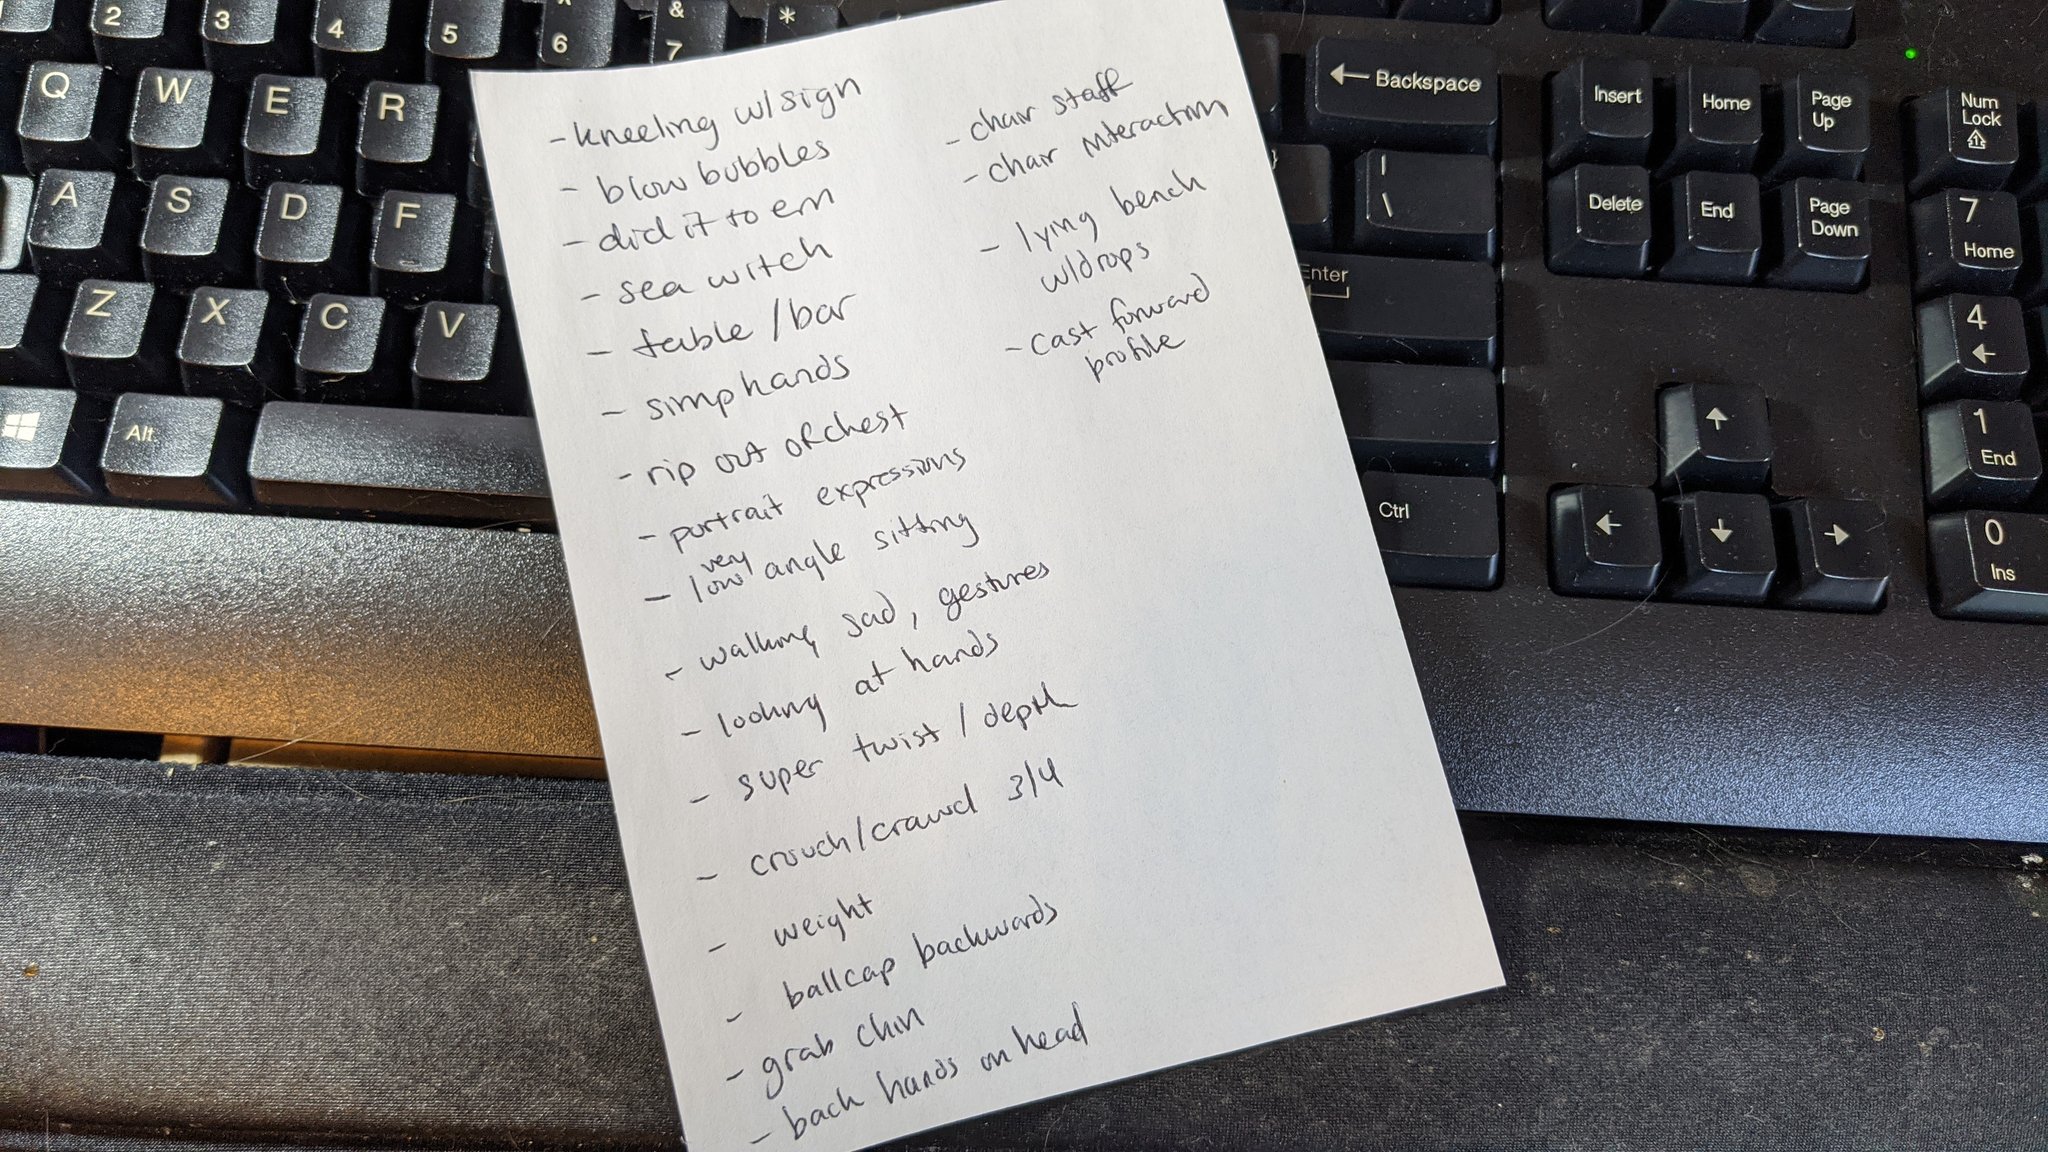 - kneeling w/sign
- blow bubbles
- did it to em
- sea witch
- table / bar
- simp hands
- rip out of chest
- portrait expressions
very
- low angle sitting
- walking, sad, gestures
- looking at hands
- super twist / depth
- crouch/crawl 3/4
- weight
- ballcap backwards
- grab chin
- back hands on head
- chair staff
- chair interaction
- lying bench
w/drops
- cast forward
profile
2 3 4 5 6 & 7 *
Q W E R
A S D F
Z X C V
Alt
← Backspace
| \
Enter
Ctrl
Insert Home Page Up
Delete End Page Down
↑
← ↓ →
Num Lock
7 Home
4 ←
1 End
0 Ins